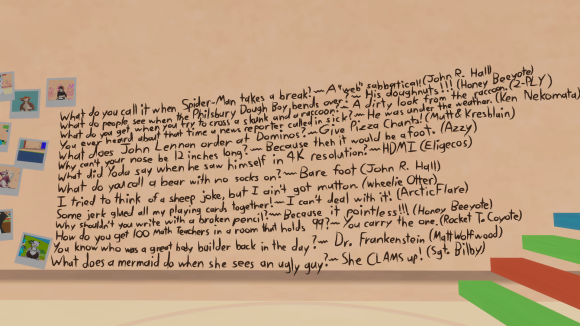 What do you call it when Spider-Man takes a break?~ A "web" sabbytical! (John R. Hall)
What do people see when the Philsbury Dough Boy bends over?~ His doughnuts!!! (Honey Boeyote)
What do you get when you try to cross a skunk and a raccoon?~ A dirty look from the raccoon. (2-PLY)
You ever heard about that time a news reporter called in sick?~ He was under the weather. (Ken Nekomata)
What does John Lennon order at Dominos?~ Give Pizza Chants! (Mutt & Kreshlain)
Why can't your nose be 12 inches long?~ Because then it would be a foot. (Azzy)
What did Yoda say when he saw himself in 4K resolution?~ HDMI (Eligecos)
What do you call a bear with no socks on?~ Bare foot (John R. Hall)
I tried to think of a sheep joke, but I ain't got mutton. (wheelie Otter)
Some jerk glued all my playing cards together!~ I can't deal with it! (ArcticFlare)
Why shouldn't you write with a broken pencil?~ Because it pointless!!! (Honey Boeyote)
How do you get 100 Math Teachers in a room that holds 99?~ You carry the one. (Rocket T. Coyote)
You know who was a great baby builder back in the day?~ Dr. Frankenstein (Matt Wolfwood)
What does a mermaid do when she sees an ugly guy?~ She CLAMS up! (Sgt. Bilby)